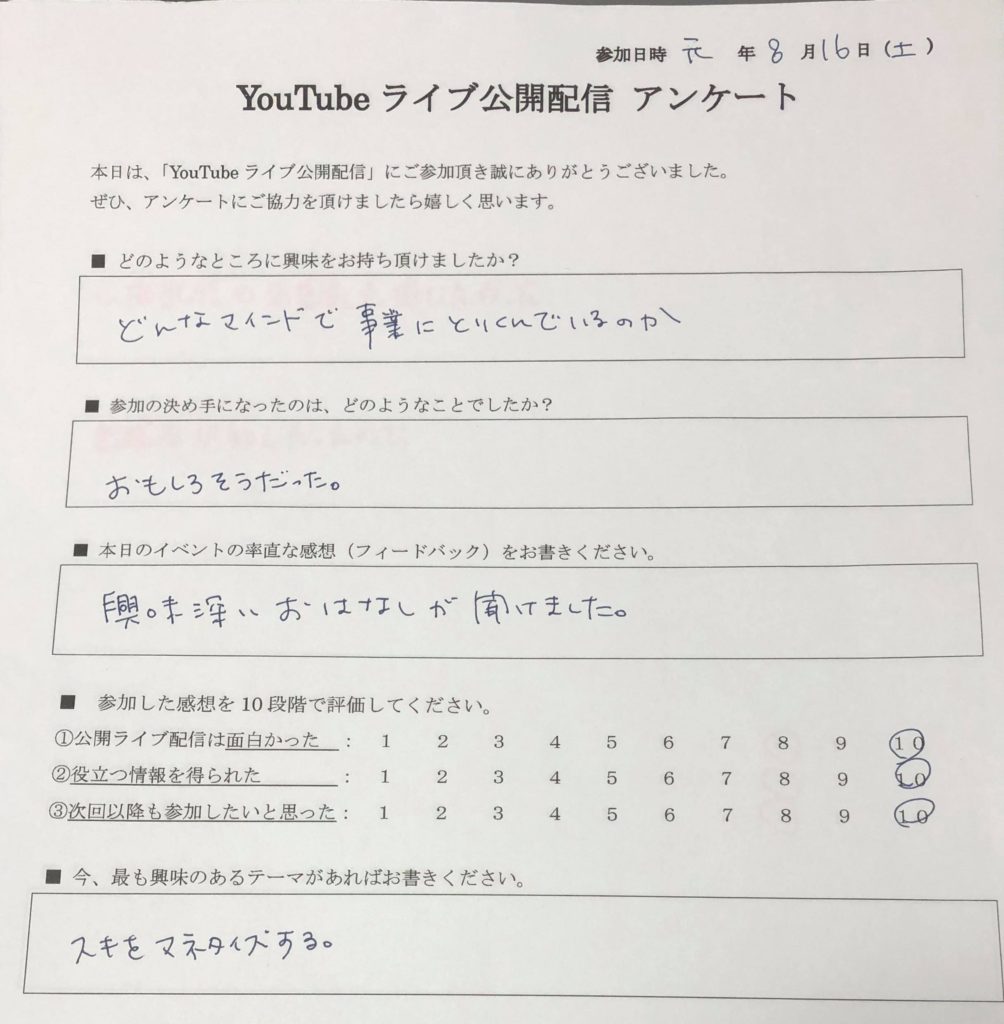 参加日時 元 年 8 月 16 日 (土)
YouTube ライブ公開配信 アンケート
本日は、「YouTube ライブ公開配信」にご参加頂き誠にありがとうございました。
ぜひ、アンケートにご協力を頂けましたら嬉しく思います。
■ どのようなところに興味をお持ち頂けましたか？
どんなマインドで事業にとりくんでいるのか
■ 参加の決め手になったのは、どのようなことでしたか？
おもしろそうだった。
■ 本日のイベントの率直な感想（フィードバック）をお書きください。
興味深いおはなしが聞けました。
■ 参加した感想を 10 段階で評価してください。
①公開ライブ配信は面白かった ： 1 2 3 4 5 6 7 8 9 10
②役立つ情報を得られた ： 1 2 3 4 5 6 7 8 9 10
③次回以降も参加したいと思った ： 1 2 3 4 5 6 7 8 9 10
■ 今、最も興味のあるテーマがあればお書きください。
スキをマネタイズする。